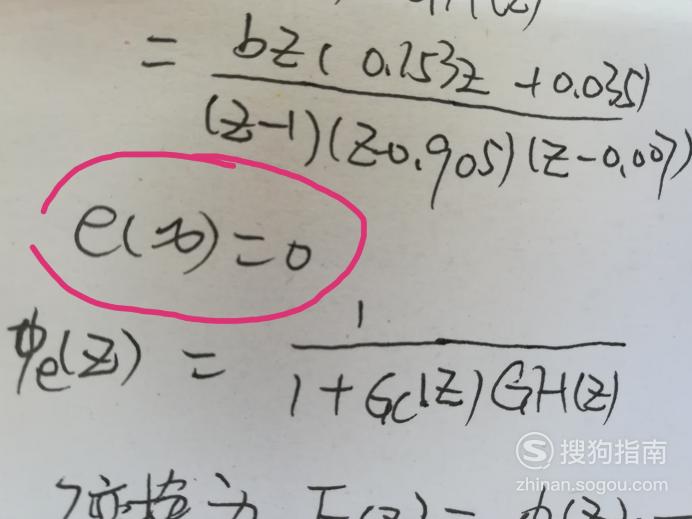 (z)
= bz(0.753z+0.035) / (z-1)(z-0.905)(z-0.007)
e(∞)=0
Φe(z) = 1 / 1+Gc(z)GH(z)
搜狗指南
zhinan.sogou.com